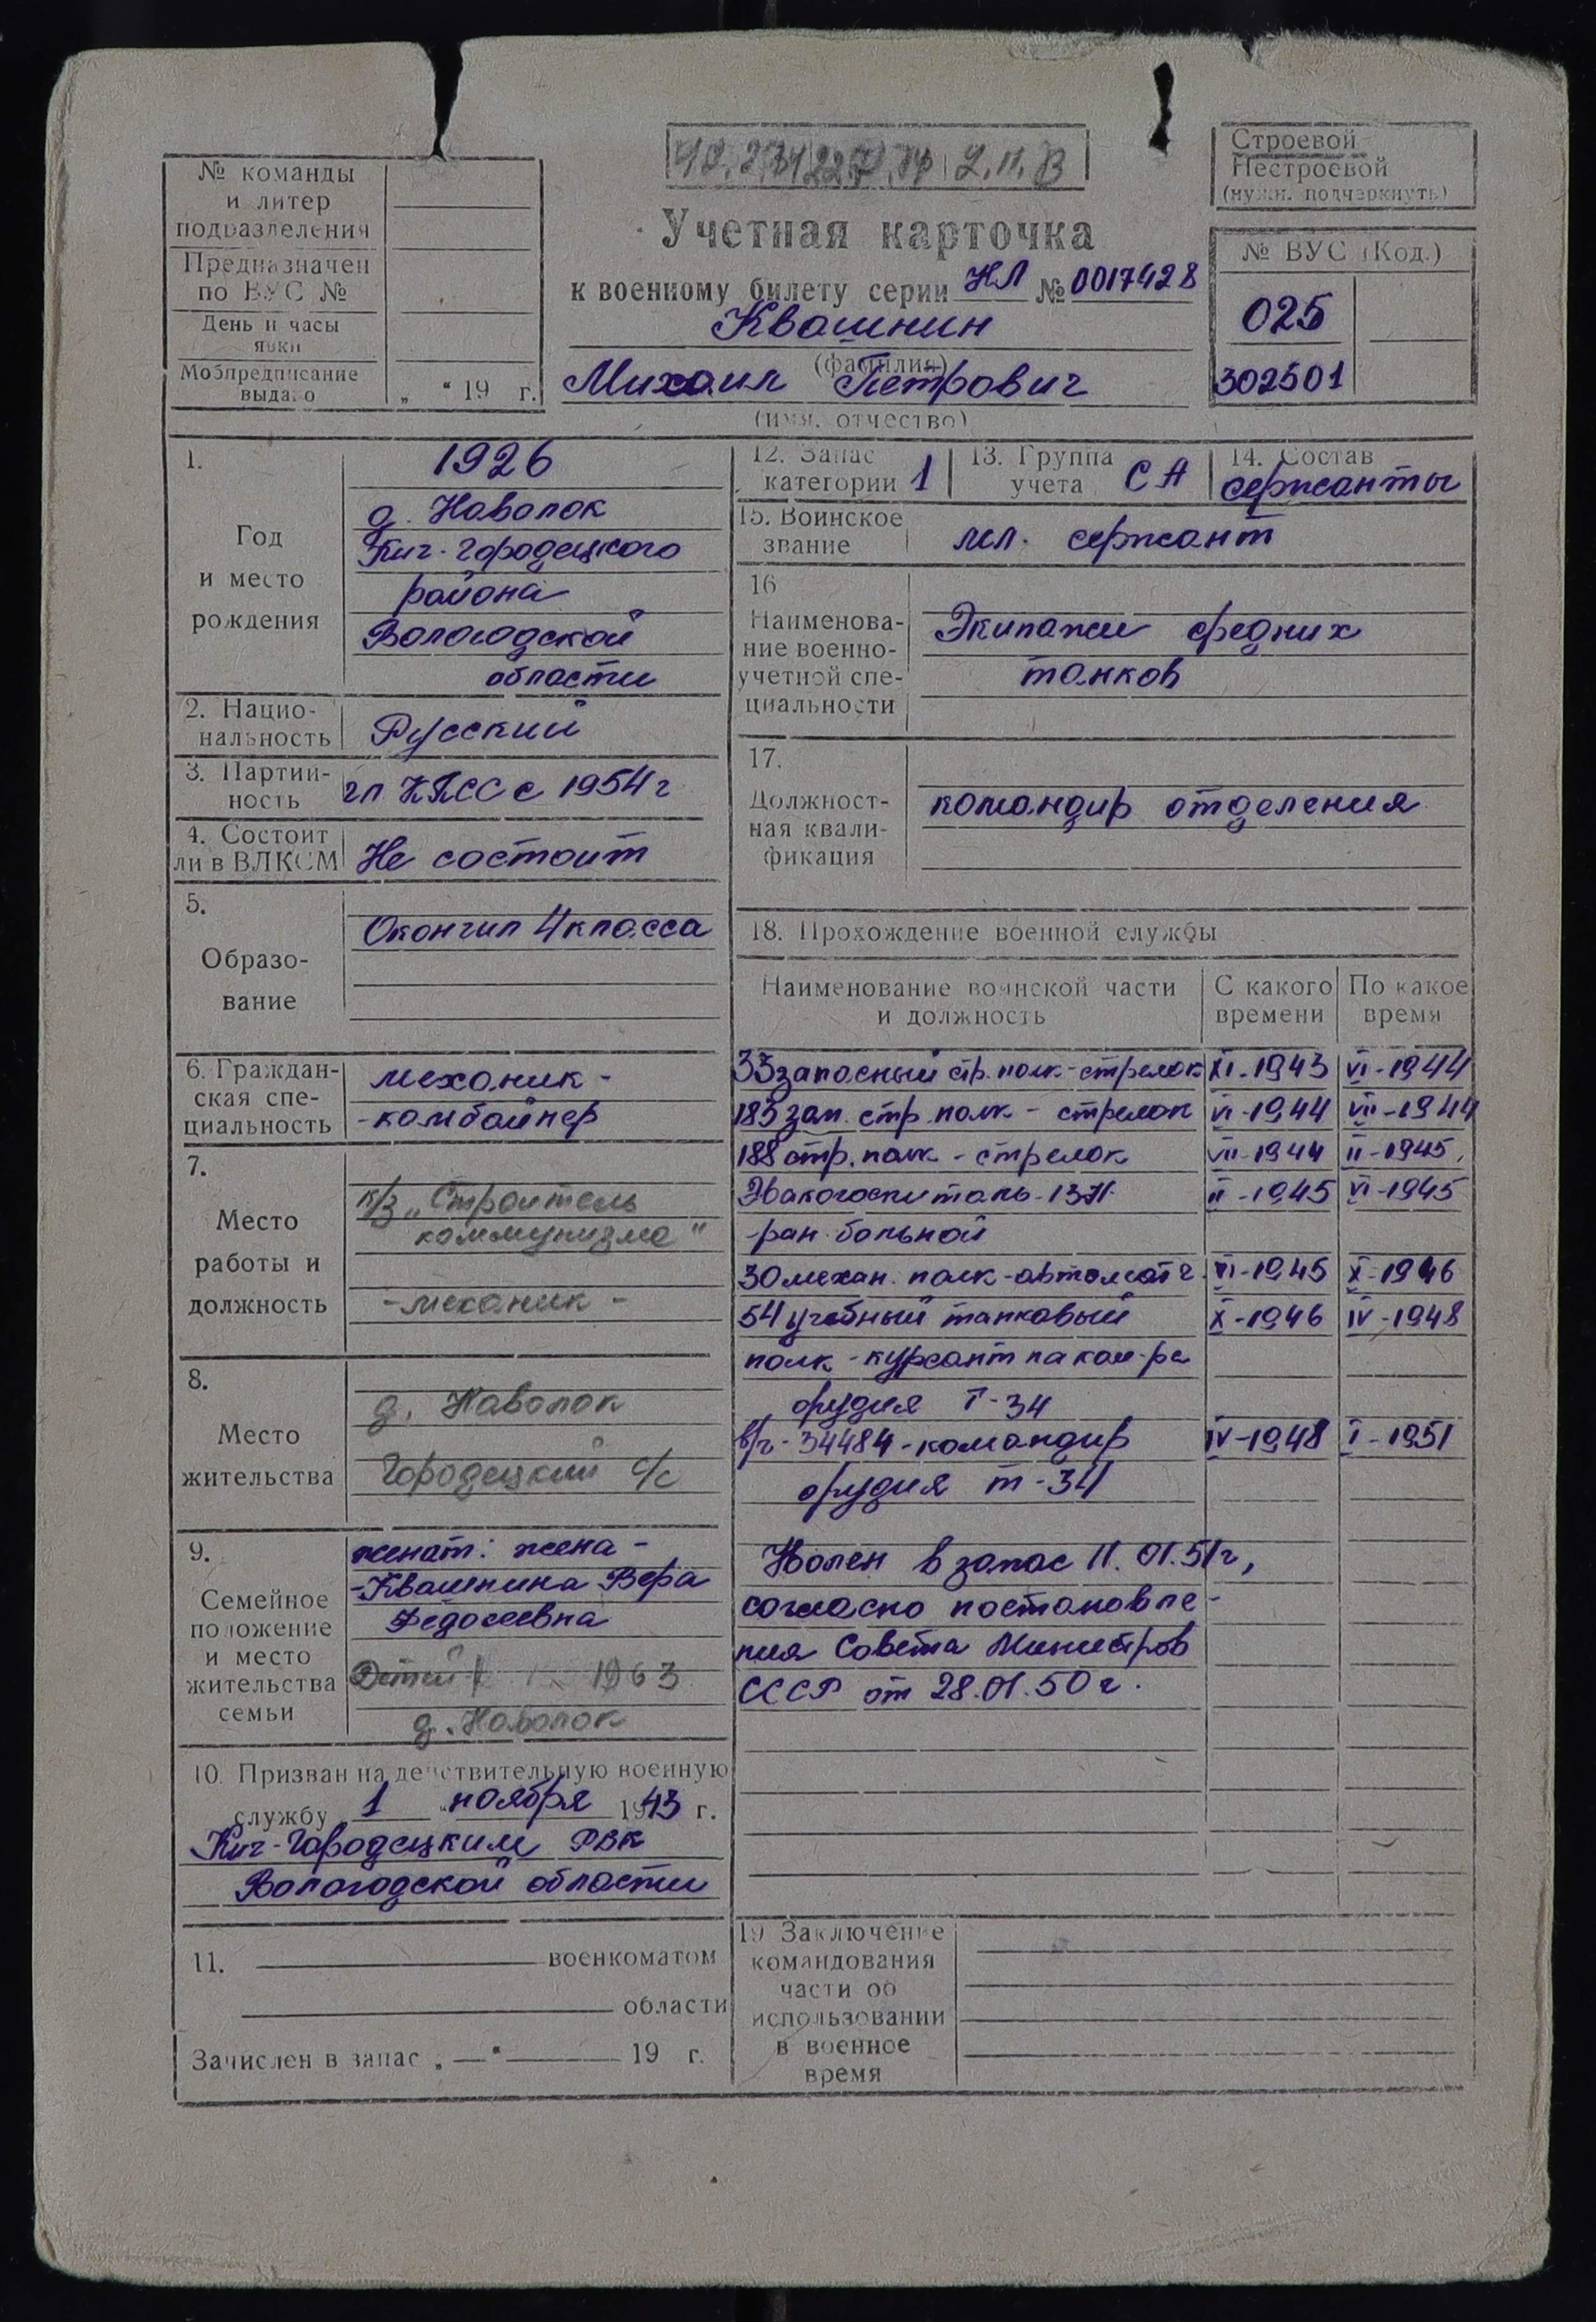 № команды
и литер
подразделения
Предназначен
по ВУС №
День и часы
явки
Мобпредписание
выдано
„ “ 19 г.
Учетная карточка
к военному билету серии НЛ № 0017428
Квашнин
(фамилия)
Михаил Петрович
(имя, отчество)
Строевой
Нестроевой
(нужн. подчеркнуть)
№ ВУС (Код.)
025
302501
1.
Год
и место
рождения
1926
д. Наволок
Кич-Городецкого
района
Вологодской
области
2. Нацио-
нальность
Русский
3. Партий-
ность
чл КПСС с 1954 г
4. Состоит
ли в ВЛКСМ
Не состоит
5.
Образо-
вание
Окончил 4 класса
6. Граждан-
ская спе-
циальность
механик -
- комбайнер
7.
Место
работы и
должность
к/з „Строитель
коммунизма"
- механик -
8.
Место
жительства
д. Наволок
Городецкий с/с
9.
Семейное
положение
и место
жительства
семьи
женат: жена -
- Квашнина Вера
Федосеевна
Детей 1 1963
д. Наволок
10. Призван на действительную военную
службу 1 " ноября 1943 г.
Кич-Городецким РВК
Вологодской области
11. военкоматом
области
Зачислен в запас „ — “ 19 г.
12. Запас
категории 1
13. Группа
учета СА
14. Состав
сержанты
15. Воинское
звание
мл. сержант
16
Наименова-
ние военно-
учетной спе-
циальности
Экипажи средних
танков
17.
Должност-
ная квали-
фикация
командир отделения
18. Прохождение военной службы
Наименование воинской части
и должность
С какого
времени
По какое
время
33 запасный стр. полк - стрелок XI-1943 VI-1944
183 зап. стр. полк - стрелок VI-1944 VII-1944
188 стр. полк - стрелок VII-1944 II-1945
Эвакогоспиталь-1371- II-1945 VI-1945
- ран. больной
30 механ. полк - автоматч. VI-1945 X-1946
54 учебный танковый X-1946 IV-1948
полк - курсант на ком-ра
орудия Т-34
в/ч - 34484 - командир IV-1948 I-1951
орудия т-34
Уволен в запас 11.01.51 г,
согласно постановле-
ния Совета Министров
СССР от 28.01.50 г.
19 Заключение
командования
части об
использовании
в военное
время